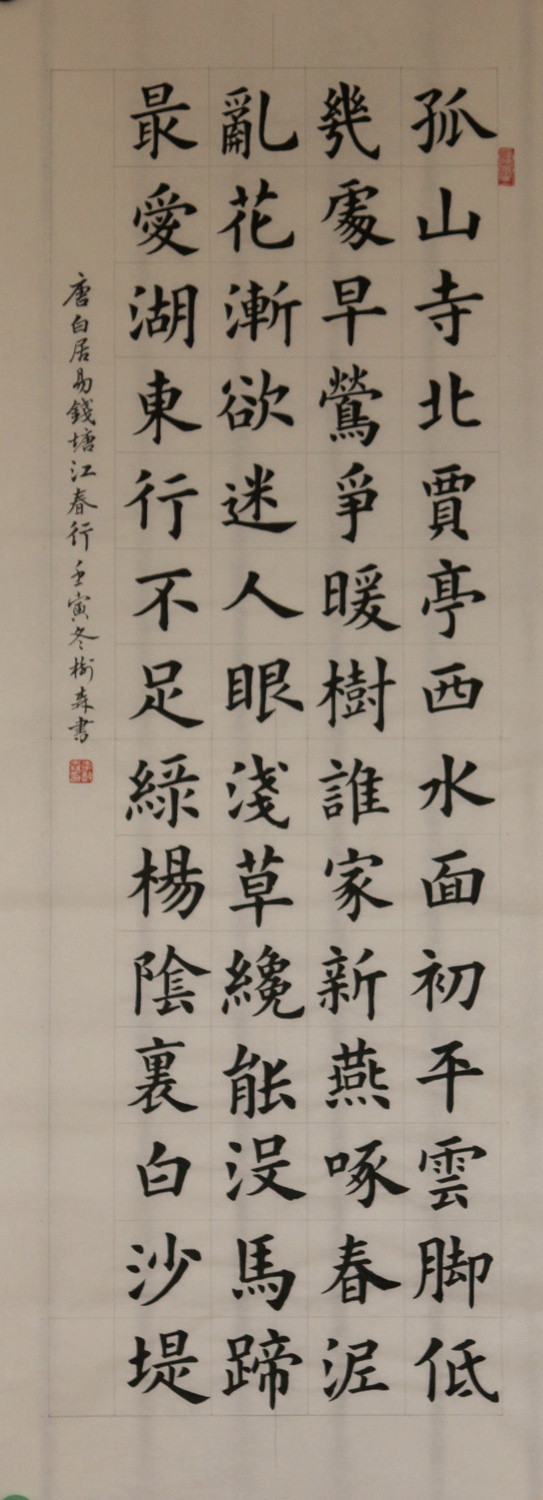 孤山寺北賈亭西水面初平雲脚低
幾處早鶯爭暖樹誰家新燕啄春泥
亂花漸欲迷人眼淺草纔能没馬蹄
最愛湖東行不足綠楊陰裏白沙堤
唐白居易錢塘江春行壬寅冬樹森書